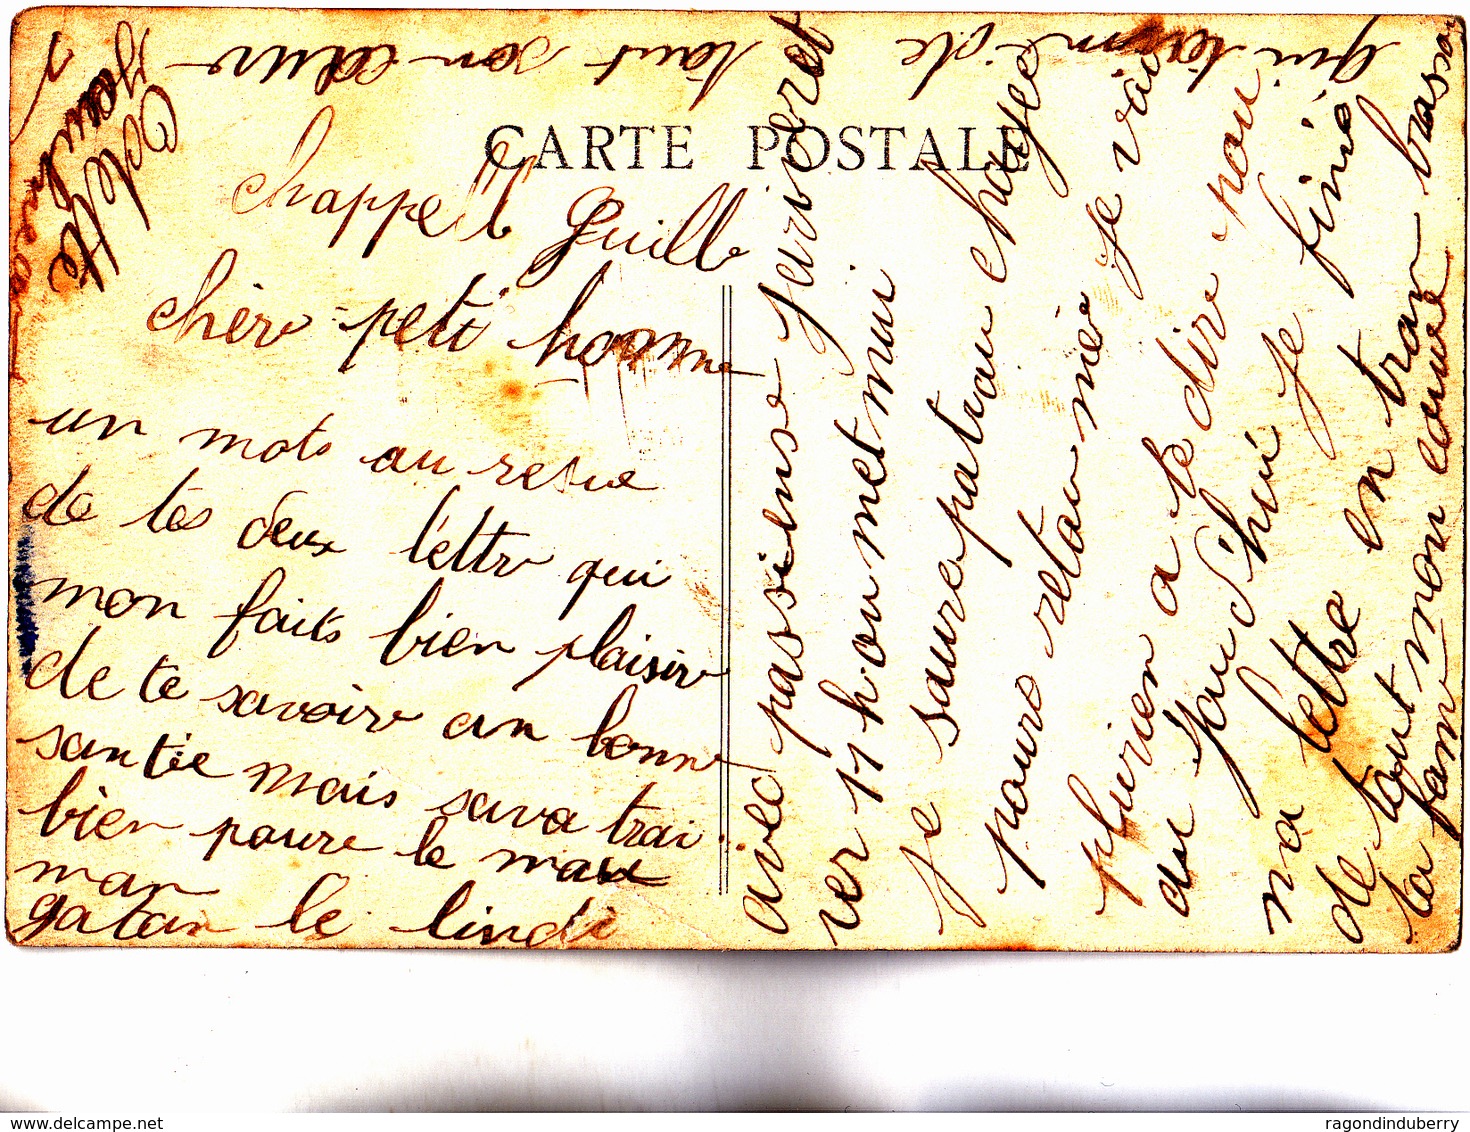 CARTE POSTALE
chappell Guille
chère petit homme
un mots au resue
de tes deux l'ettre qui
mon faits bien plaisire
de te savoire en bonne
santée mais sava trai
bien poure le
man
gatan le lindi
avec passiense jariveret
ver 11 h ou met mui
je saure patran chayée
poure retau née je vai
plurien a te dire pou
au jourd'hui je finié
na lettre en tran
de tout mon couere
ta fam
qui t'aimé de tout son cœur
Odette